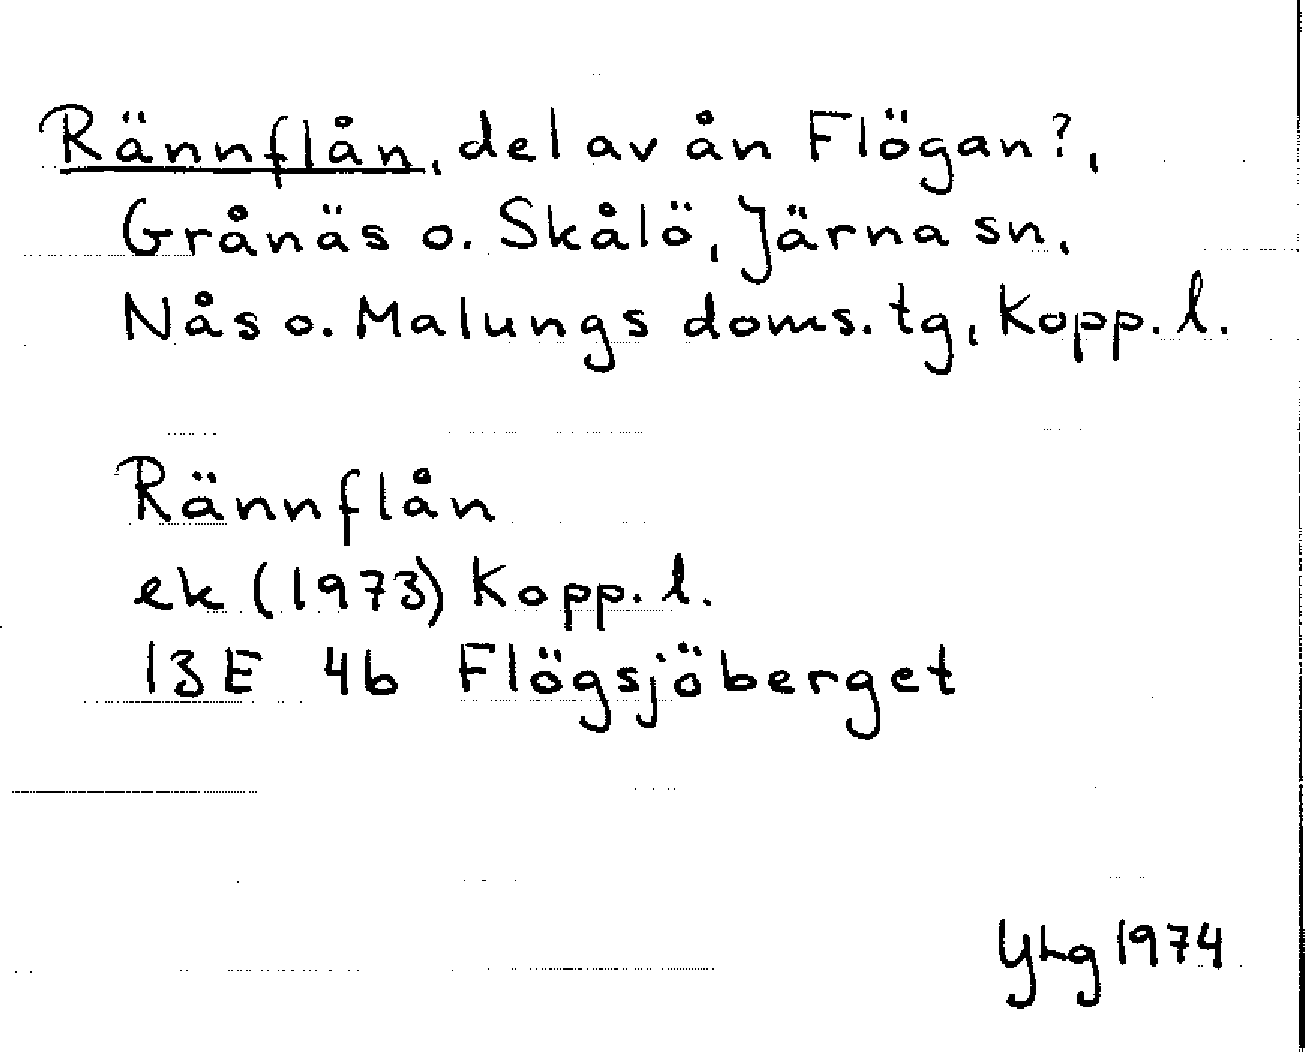 Rännflån, del av ån Flögan?,
Grånäs o. Skålö, Järna sn,
Nås o. Malungs doms. tg, Kopp. l.
Rännflån
ek (1973) Kopp. l.
13E 4b Flögsjöberget
YLg 1974